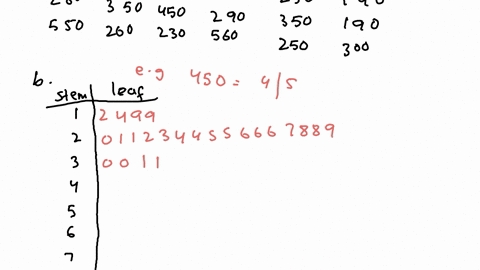 350 450 290 350 190
550 260 230 560 250 300
b. e.g 450 = 4/5
stem leaf
1 2 4 9 9
2 0 1 1 2 3 4 4 5 5 6 6 6 7 8 8 9
3 0 0 1 1
4
5
6
7